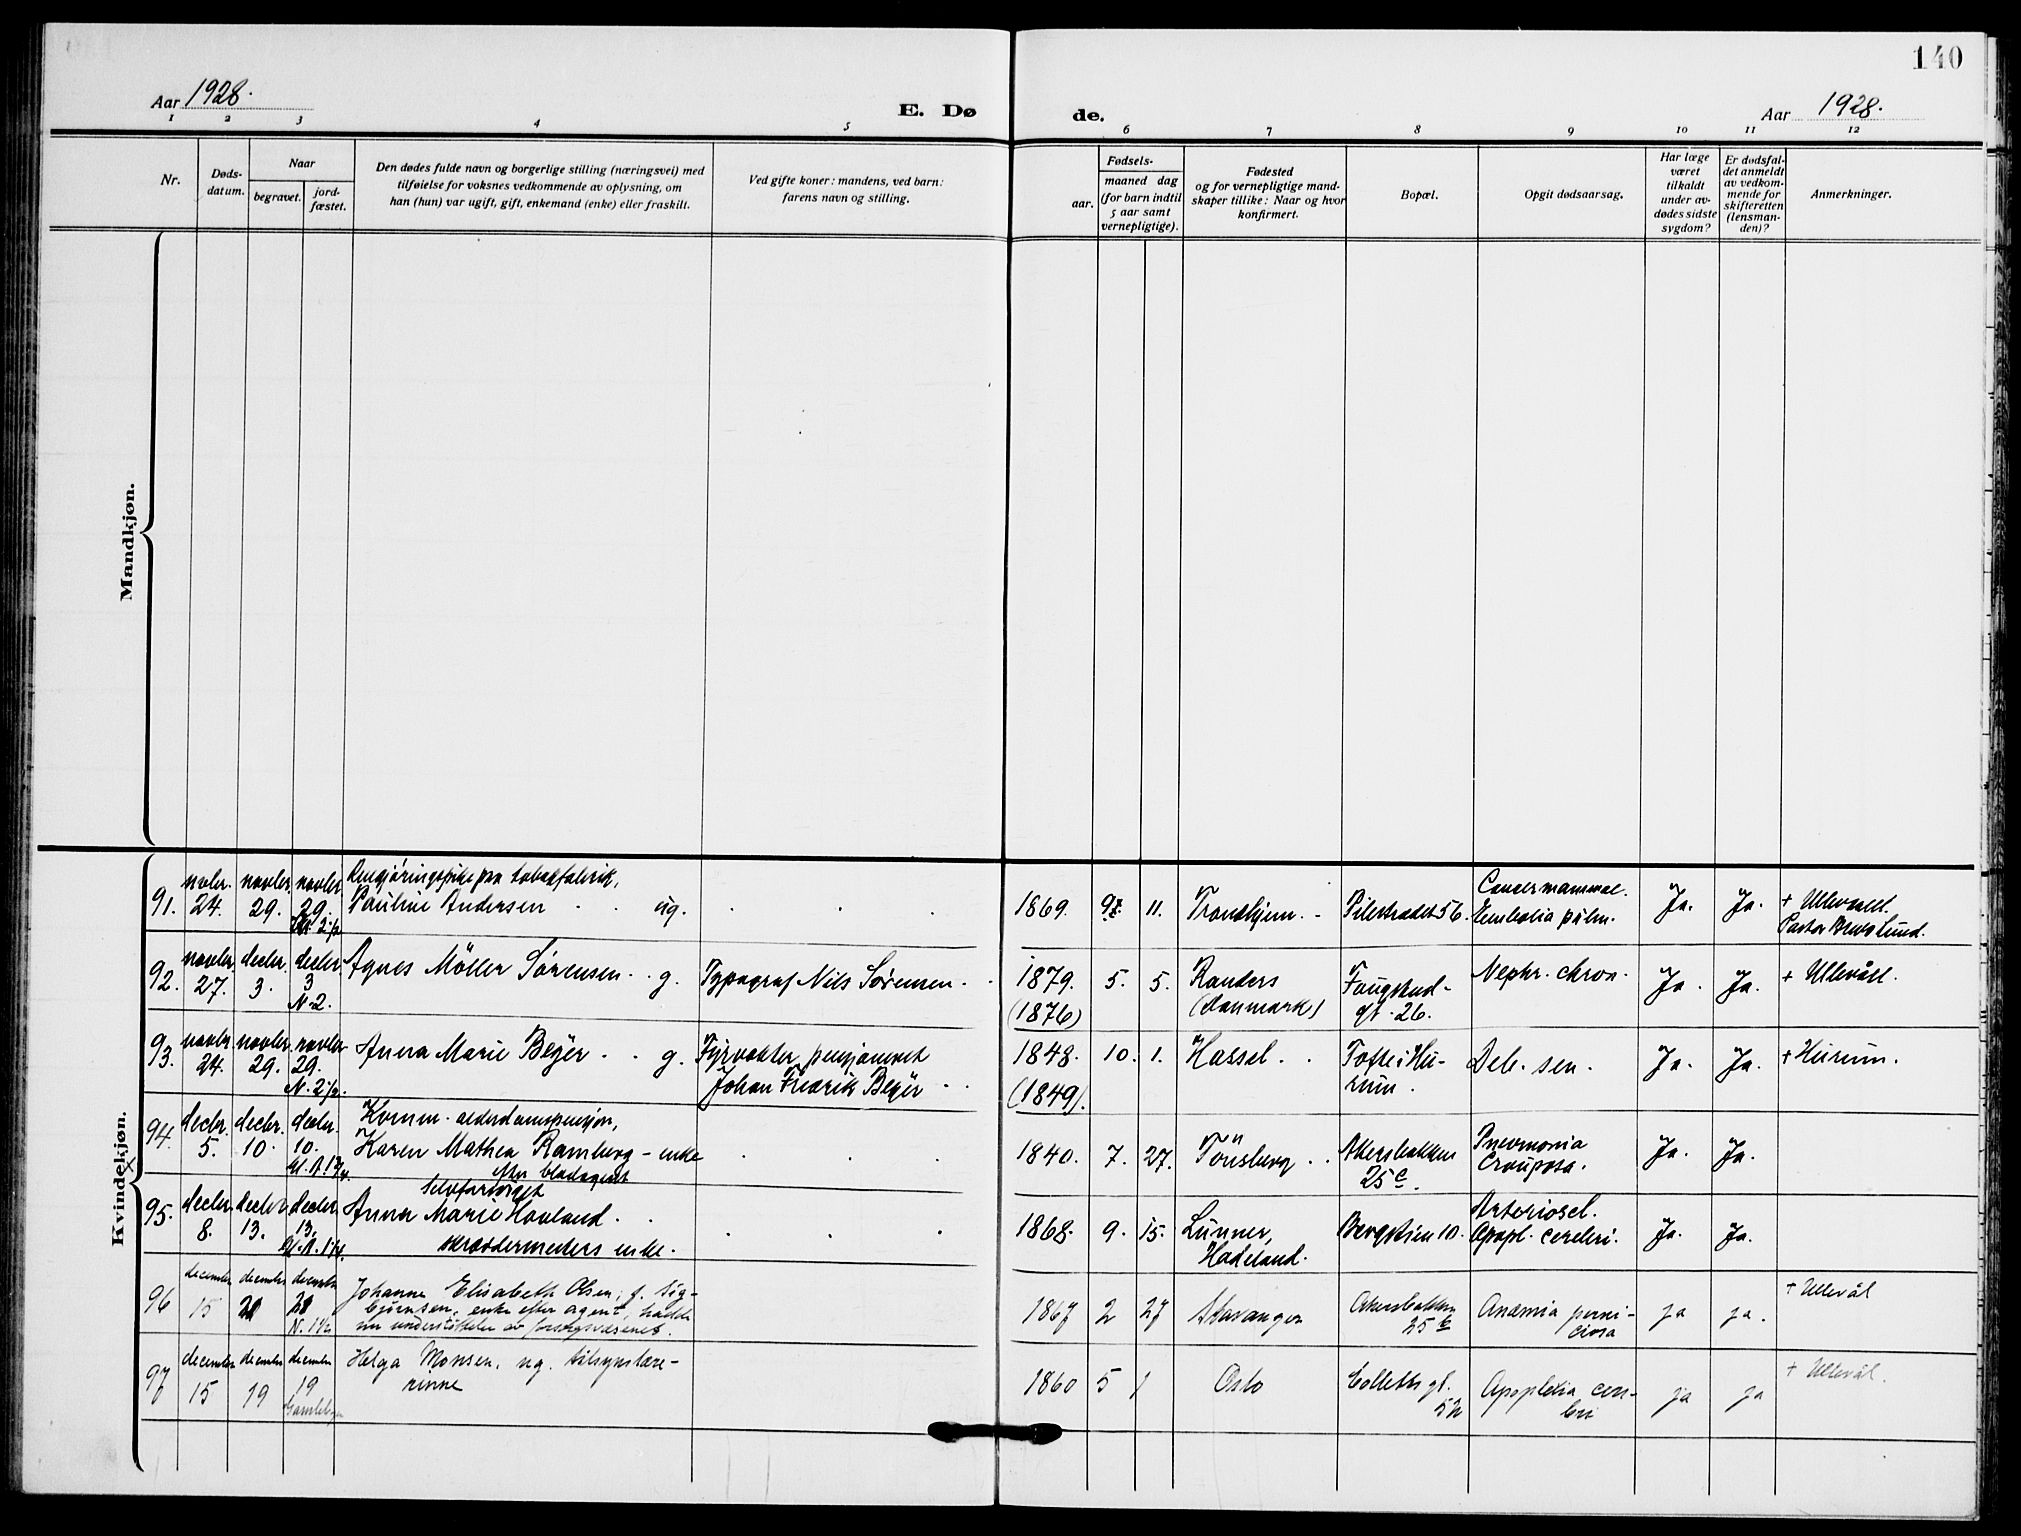 140
Aar 1928.
E. Dø
de.
Aar 1928.
1 2 3 4 5 6 7 8 9 10 11 12
Nr.
Døds-
datum.
Naar
begravet.
jord-
fæstet.
Den dødes fulde navn og borgerlige stilling (næringsvei) med
tilføielse for voksnes vedkommende av oplysning, om
han (hun) var ugift, gift, enkemand (enke) eller fraskilt.
Ved gifte koner: mandens, ved barn:
farens navn og stilling.
Fødsels-
aar.
maaned dag
(for barn indtil
5 aar samt
vernepligtige).
Fødested
og for vernepligtige mand-
skaper tillike: Naar og hvor
konfirmert.
Bopæl.
Opgit dødsaarsag.
Har læge
været
tilkaldt
under av-
dødes sidste
sygdom?
Er dødsfal-
det anmeldt
av vedkom-
mende for
skifteretten
(lensman-
den)?
Anmerkninger.
Mandkjøn.
Kvindekjøn.
91. novbr. 24. novbr. 29. novbr. 29.
Rengjøringspike paa tobakfabrik,
Pauline Andersen ug.
1869. 9. 11. Trondhjem. Pilestrædet 56.
Cancer mammae.
Embolia pulm.
Ja. Ja. + Ullevaal.
Pastor
92. novbr. 27. decbr. 3. decbr. 3 N. 2.
Agnes Möller Sørensen g. Typograf Nils Sørensen.
1879. (1876) 5. 5. Randers
(Danmark)
Fougstad-
gt. 26.
Nephr. chron. Ja. Ja. + Ullevål.
93. novbr. 24. novbr. 29. novbr. 29. N. 2½.
Anna Marie Beyer g. Fyrvokter, pensjoneret
Johan Fredrik Beyer
1848. (1849). 10. 1. Hassel. Tofte i Hu-
rum.
Deb. sen. Ja. Ja. + Hurum.
94. decbr. 5. decbr. 10. decbr. 10.
Komm. alderdomspensjon,
Karen Mathea Ramberg – enke
efter bladagent
1840. 7. 27. Tönsberg. Akersbakken
25 c.
Pneumonia
crouposa.
Ja. Ja.
95. decbr. 8. decbr. 13. decbr. 13.
Selvforsørget
Anna Marie Hovland.
skræddermesters enke.
1868. 9. 15. Lunner,
Hadeland.
Bergstien 10.
Arterioscl.
Apopl. cerebri.
Ja. Ja.
96 december 15 december 21 december 21 N. 1½
Johanne Elisabeth Olsen, f. Sig-
bjørnsen, enke efter agent, hadde
nu understøttelse av forsorgsvæsenet.
1867 2 27 Stavanger Akersbakken
25 b
Anæmia perni-
ciosa
ja ja. + Ullevål
97 december 15 december 19 december 19
Gamlebyen
Helga Monsen, ug. tilsynslære-
rinne
1860 5 1 Oslo Colletts gt.
52
Apoplexia cere-
bri
ja ja + Ullevål.